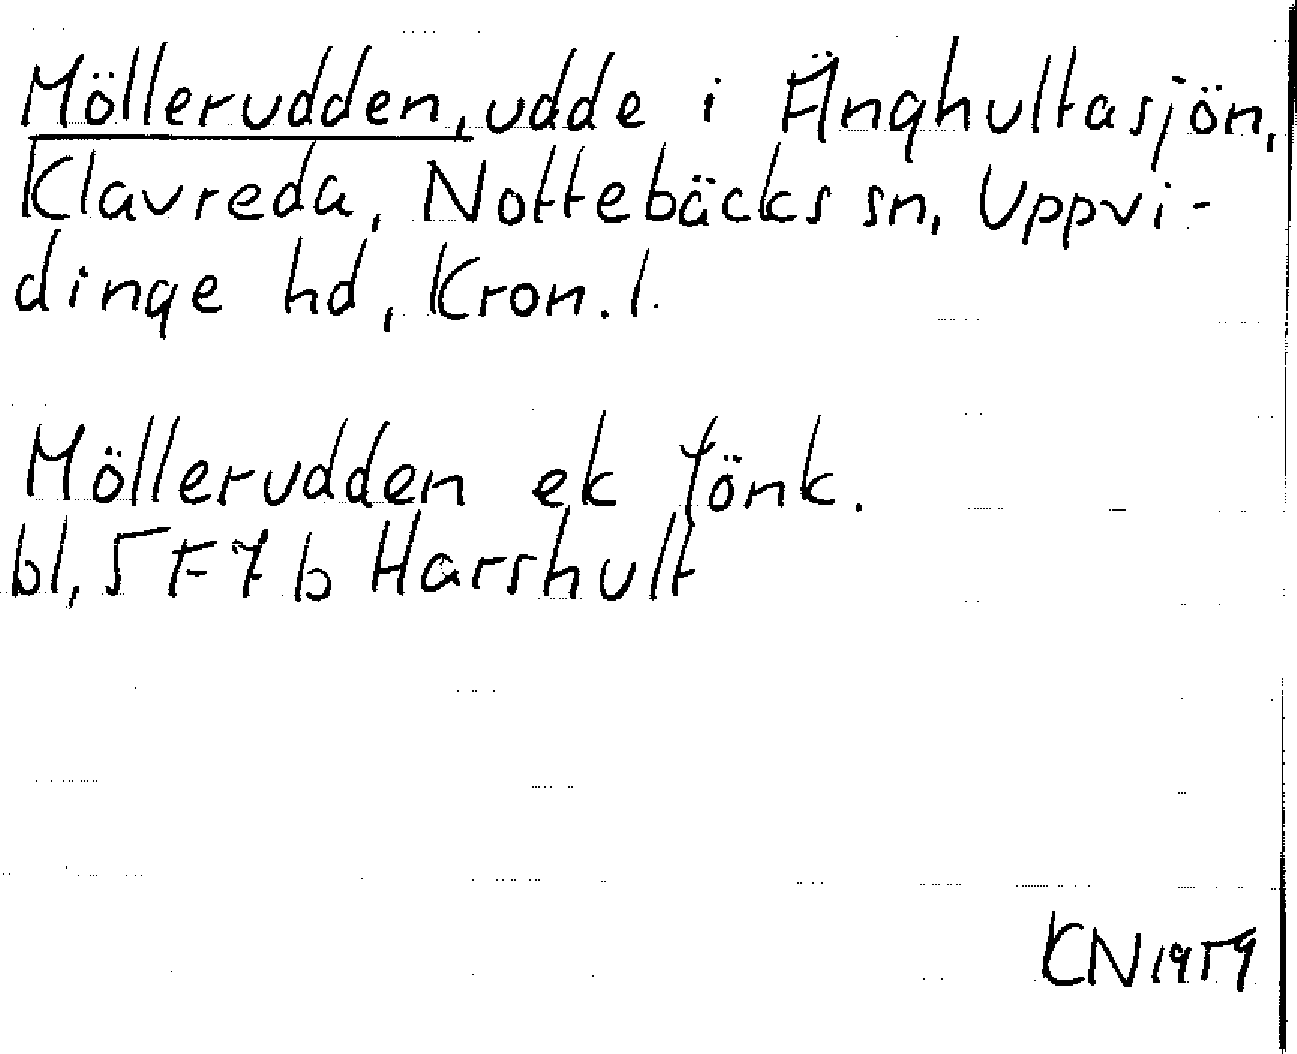 Möllerudden, udde i Änghultasjön,
Klavreda, Nottebäcks sn, Uppvi-
dinge hd, Kron. l.
Möllerudden ek fönk.
bl, 5 F 7 b Harshult
KN 1959